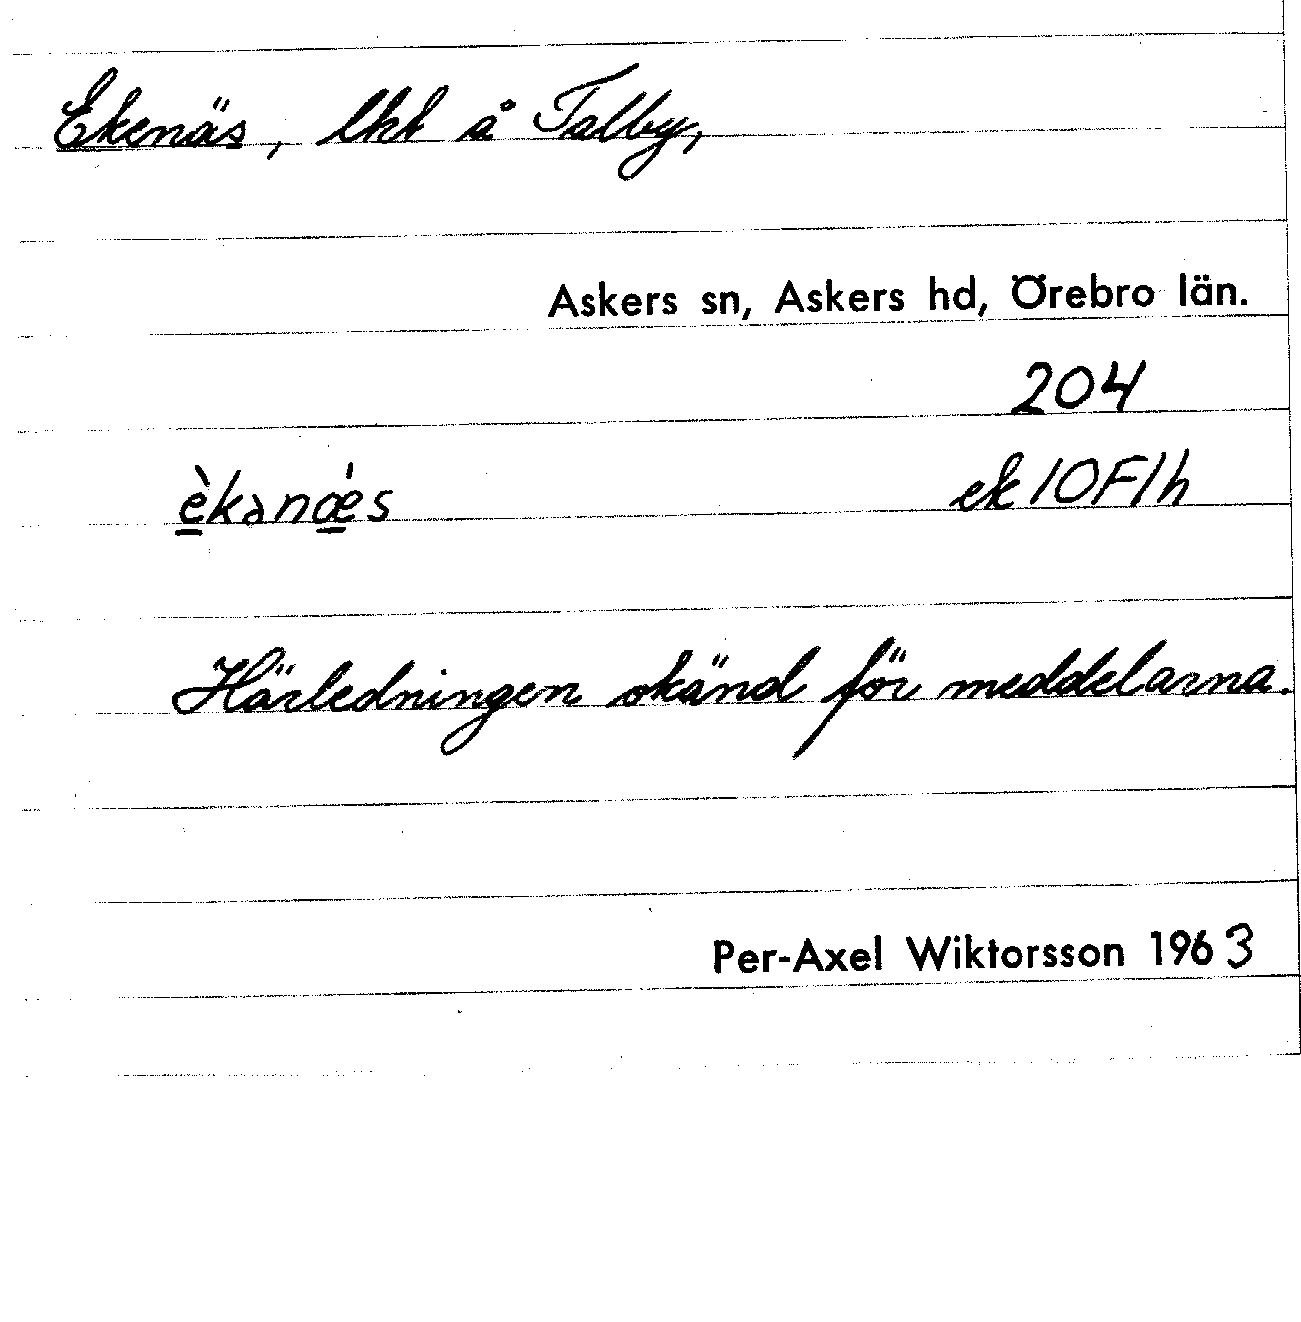 Ekenäs, lht å Talby,
Askers sn, Askers hd, Örebro län.
204
è̱kənǽ̱s
ek 10F1h
Härledningen okänd för meddelarna.
Per-Axel Wiktorsson 1963